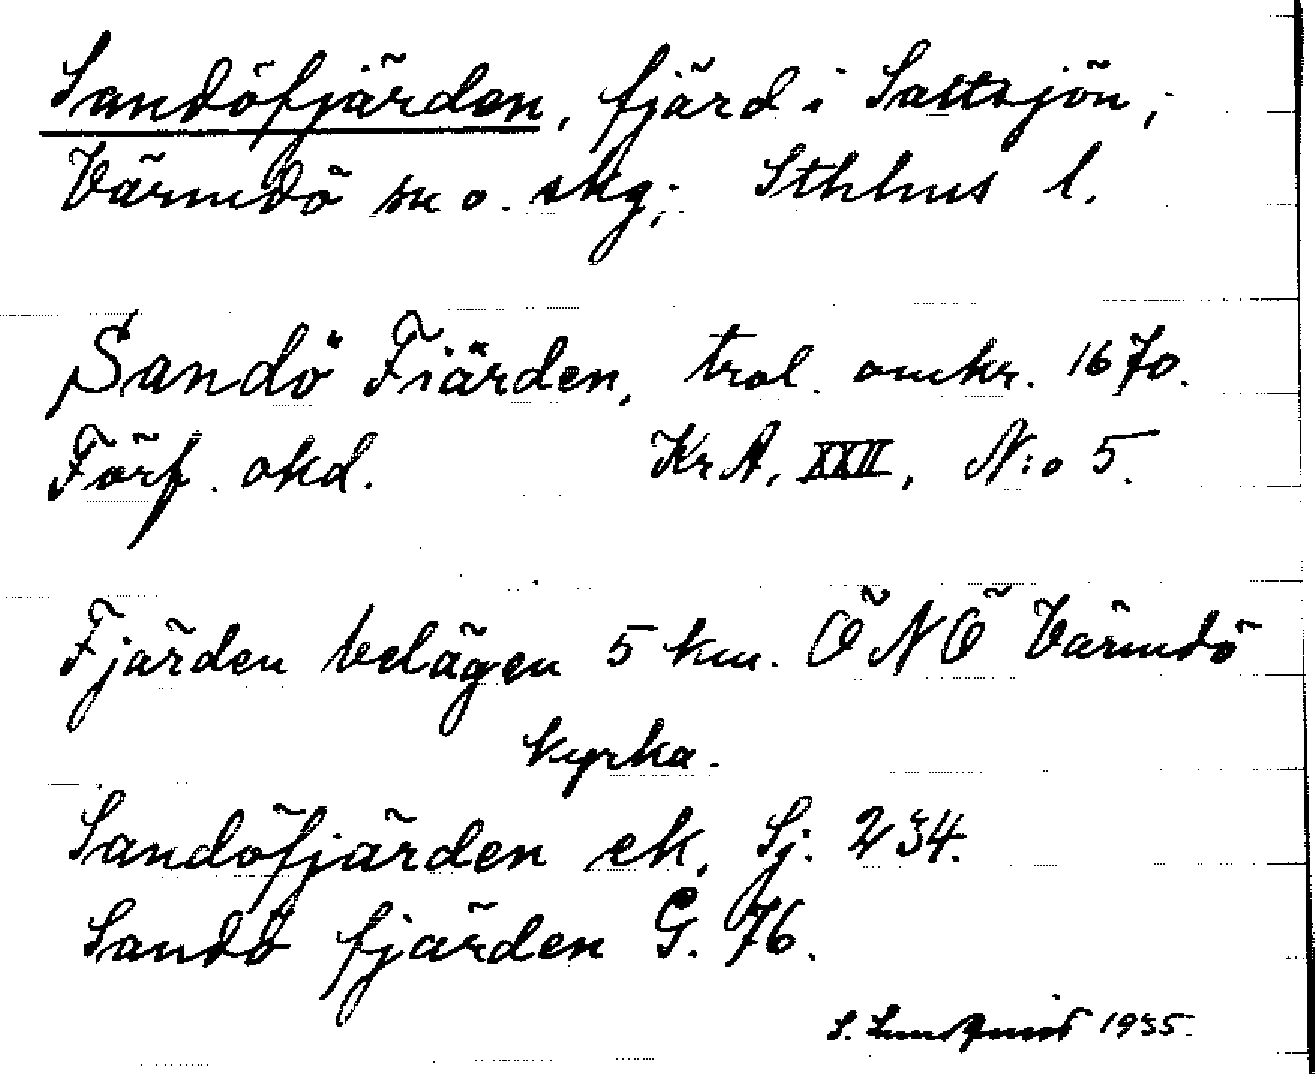 Sandöfjärden, fjärd i Saltsjön,
Värmdö sn o. skg; Sthlms l.
Sandö Fiärden, trol. omkr. 1670.
Förf. okd. KrA, XXII, N:o 5.
Fjärden belägen 5 km. ÖNÖ Värmdö
kyrka.
Sandöfjärden ek, Sj. 234.
Sandö fjärden G. 76.
S. Lundqvist 1935.